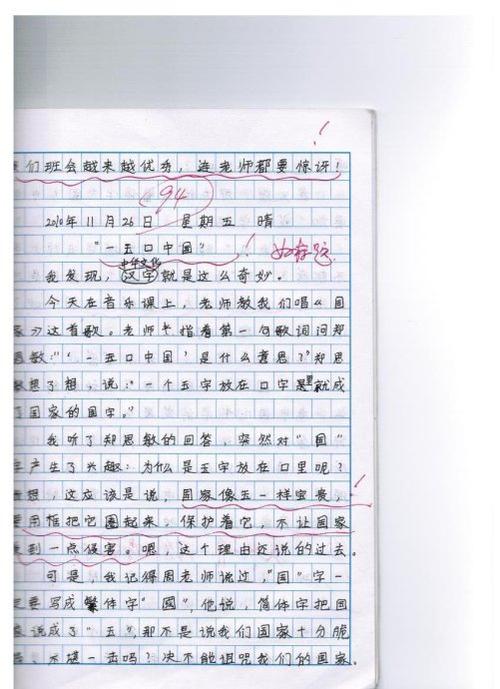 我们班会越来越优秀，连老师都要惊讶！
94
2010年11月26日 星期五 晴
“一玉口中国”
中华文化
我发现，汉字就是这么奇妙。
今天在音乐课上，老师教我们唱《国
家》这首歌。老师指着第一句歌词问郑
思敏：“‘一玉口中国’是什么意思？”郑思
敏想了想，说：“一个玉字放在口字里就成
了国家的国字。”
我听了郑思敏的回答，突然对“国”
字产生了兴趣：为什么是玉字放在口里呢？
我想，这应该是说，国家像玉一样宝贵，
要用框把它圈起来，保护着它，不让国家
受到一点侵害。嗯，这个理由还说的过去。
可是，我记得周老师说过，“国”字一
定要写成繁体字“國”，他说，简体字把国
家说成了“玉”，那不是说我们国家十分脆
弱，不堪一击吗？决不能诅咒我们的国家。